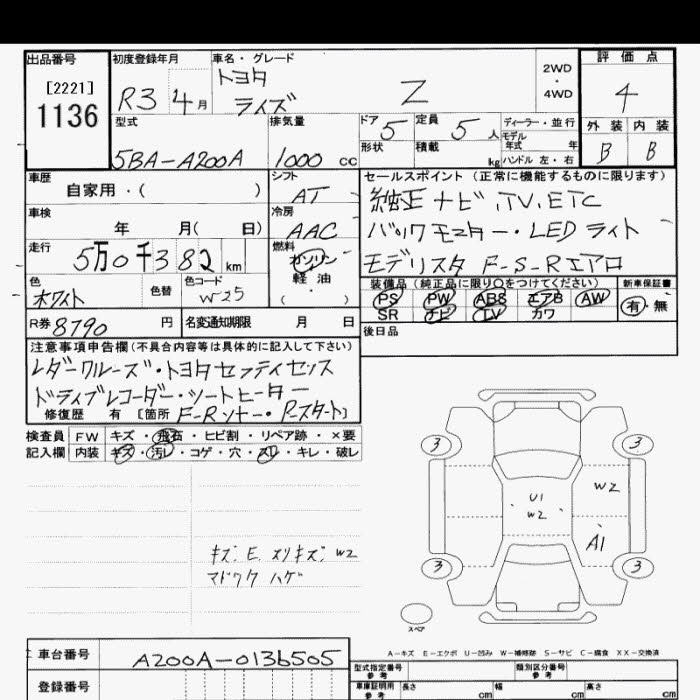 出品番号
[2221]
1136
初度登録年月
R3 4月
車名・グレード
トヨタ
ライズ
Z
2WD
・
4WD
評価点
4
外装 内装
B B
型式
5BA-A200A
排気量
1000 cc
ドア 5
定員 5 人
形状
積載 kg
ディーラー・並行
モデル年式 年
ハンドル 左・右
車歴
自家用・( )
シフト
AT
車検
年 月( 日)
冷房
AAC
走行
5万0千382 km
燃料
ガソリン
軽油
( ・ )
色
ホワイト
色替
色コード
W25
R券 8790 円
名変通知期限 月 日
セールスポイント (正常に機能するものに限ります)
純正ナビ、TV、ETC
バックモニター・LEDライト
モデリスタ F-S-Rエアロ
装備品(純正品に限り○をつけてください)
新車保証書
PS PW ABS エアB AW
有・無
SR ナビ TV カワ
後日品
注意事項申告欄(不具合内容等は具体的に記入して下さい)
レダークルーズ・トヨタセフティセンス
ドライブレコーダー・シートヒーター
修復歴 有 [箇所 F-Rソナー・Pスタート]
検査員 FW キズ・飛石・ヒビ割・リペア跡・×要
記入欄 内装 キズ・汚レ・コゲ・穴・スレ・キレ・破レ
キズ、E、スリキズ、W2
マドワク ハゲ
3 3
W2
U1
W2
A1
3 3
スペア
A-キズ E-エクボ U-凹み W-補修跡 S-サビ C-腐食 XX-交換済
車台番号 A200A-0136505
登録番号
型式指定番号
参考
類別区分番号
参考
車庫証明用
参考
長さ cm
幅 cm
高さ cm